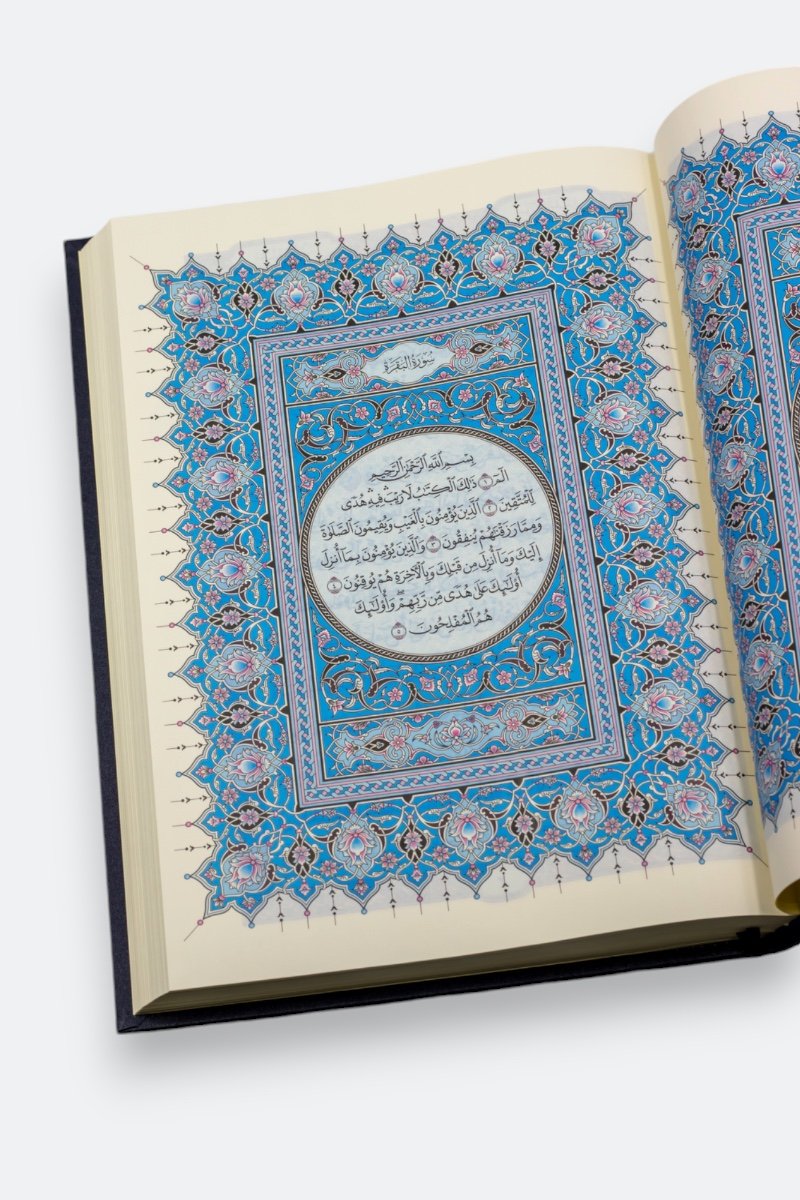 سُورَةُ البَقَرَةِ
بِسْمِ اللَّهِ الرَّحْمَٰنِ الرَّحِيمِ
الٓمٓ ١ ذَٰلِكَ الْكِتَٰبُ لَا رَيْبَ ۛ فِيهِ ۛ هُدًى
لِّلْمُتَّقِينَ ٢ الَّذِينَ يُؤْمِنُونَ بِالْغَيْبِ وَيُقِيمُونَ الصَّلَوٰةَ
وَمِمَّا رَزَقْنَٰهُمْ يُنفِقُونَ ٣ وَالَّذِينَ يُؤْمِنُونَ بِمَا أُنزِلَ
إِلَيْكَ وَمَا أُنزِلَ مِن قَبْلِكَ وَبِالْآخِرَةِ هُمْ يُوقِنُونَ ٤
أُولَٰئِكَ عَلَىٰ هُدًى مِّن رَّبِّهِمْ ۖ وَأُولَٰئِكَ
هُمُ الْمُفْلِحُونَ ٥